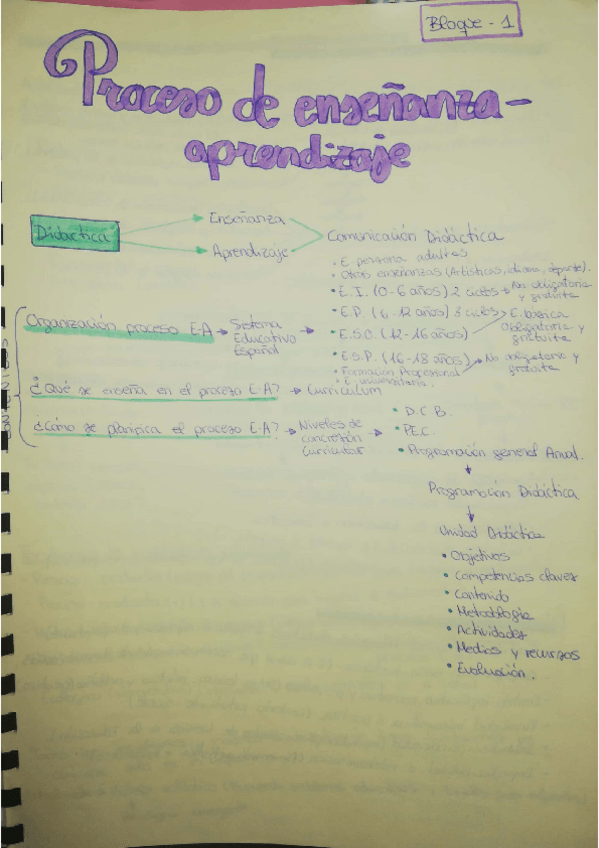 Bloque - 1
Proceso de enseñanza -
aprendizaje
Didáctica
Enseñanza
Aprendizaje
Comunicación Didáctica
• E. persona adultas
• Otras enseñanzas (Artísticas, idioma, deporte).
• E.I. (0-6 años) 2 ciclos → No obligatoria y gratuita
• E.P. (6-12 años) 3 ciclos
• E.S.O. (12-16 años)
E. básica
Obligatoria y
gratuita
• E.S.P. (16-18 años)
• Formación Profesional
• E. universitaria.
No obligatoria y
gratuita
Organización proceso E-A → Sistema
Educativo
Español
¿Qué se enseña en el proceso E-A? → Curriculum
¿Cómo se planifica el proceso E-A? → Niveles de
concreción
Curricular
• D.C.B.
• P.E.C.
• Programación general Anual.
Programación Didáctica
Unidad Didáctica
• Objetivos
• Competencias claves
• Contenido
• Metodología
• Actividades
• Medios y recursos
• Evaluación.